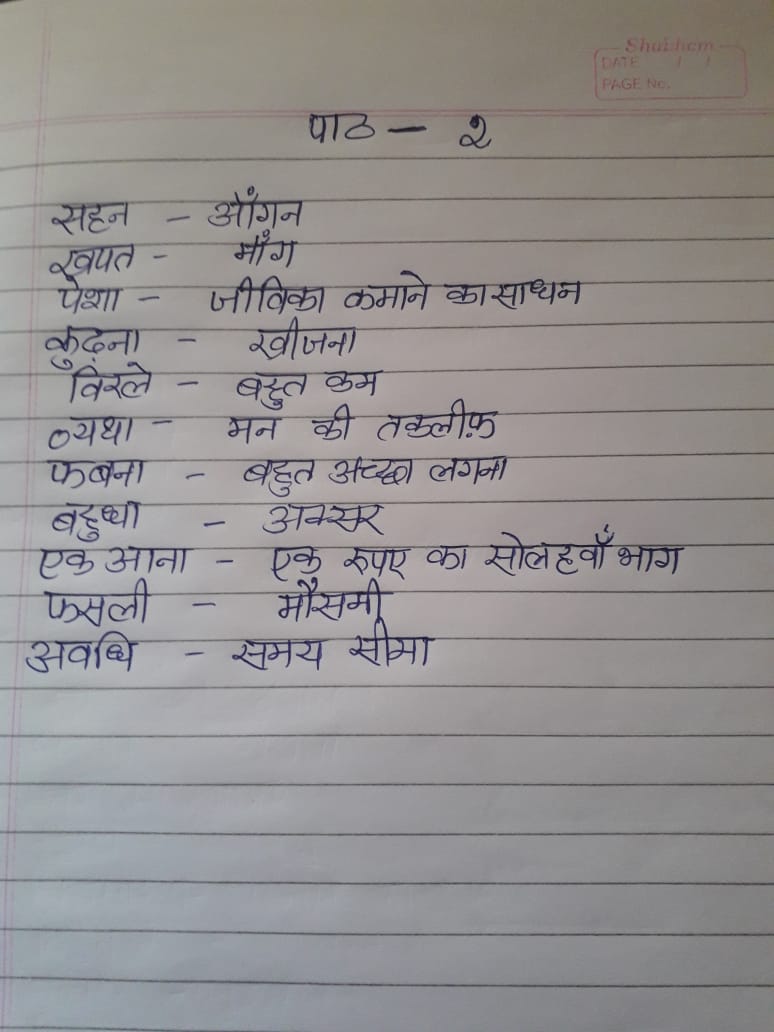 Shuishem
DATE / /
PAGE No.
पाठ - २
सहन - आँगन
खपत - माँग
पेशा - जीविका कमाने का साधन
कुढ़ना - खीजना
विरले - बहुत कम
व्यथा - मन की तकलीफ़
फबना - बहुत अच्छा लगना
बहुधा - अक्सर
एक आना - एक रुपए का सोलहवाँ भाग
फसली - मौसमी
अवधि - समय सीमा